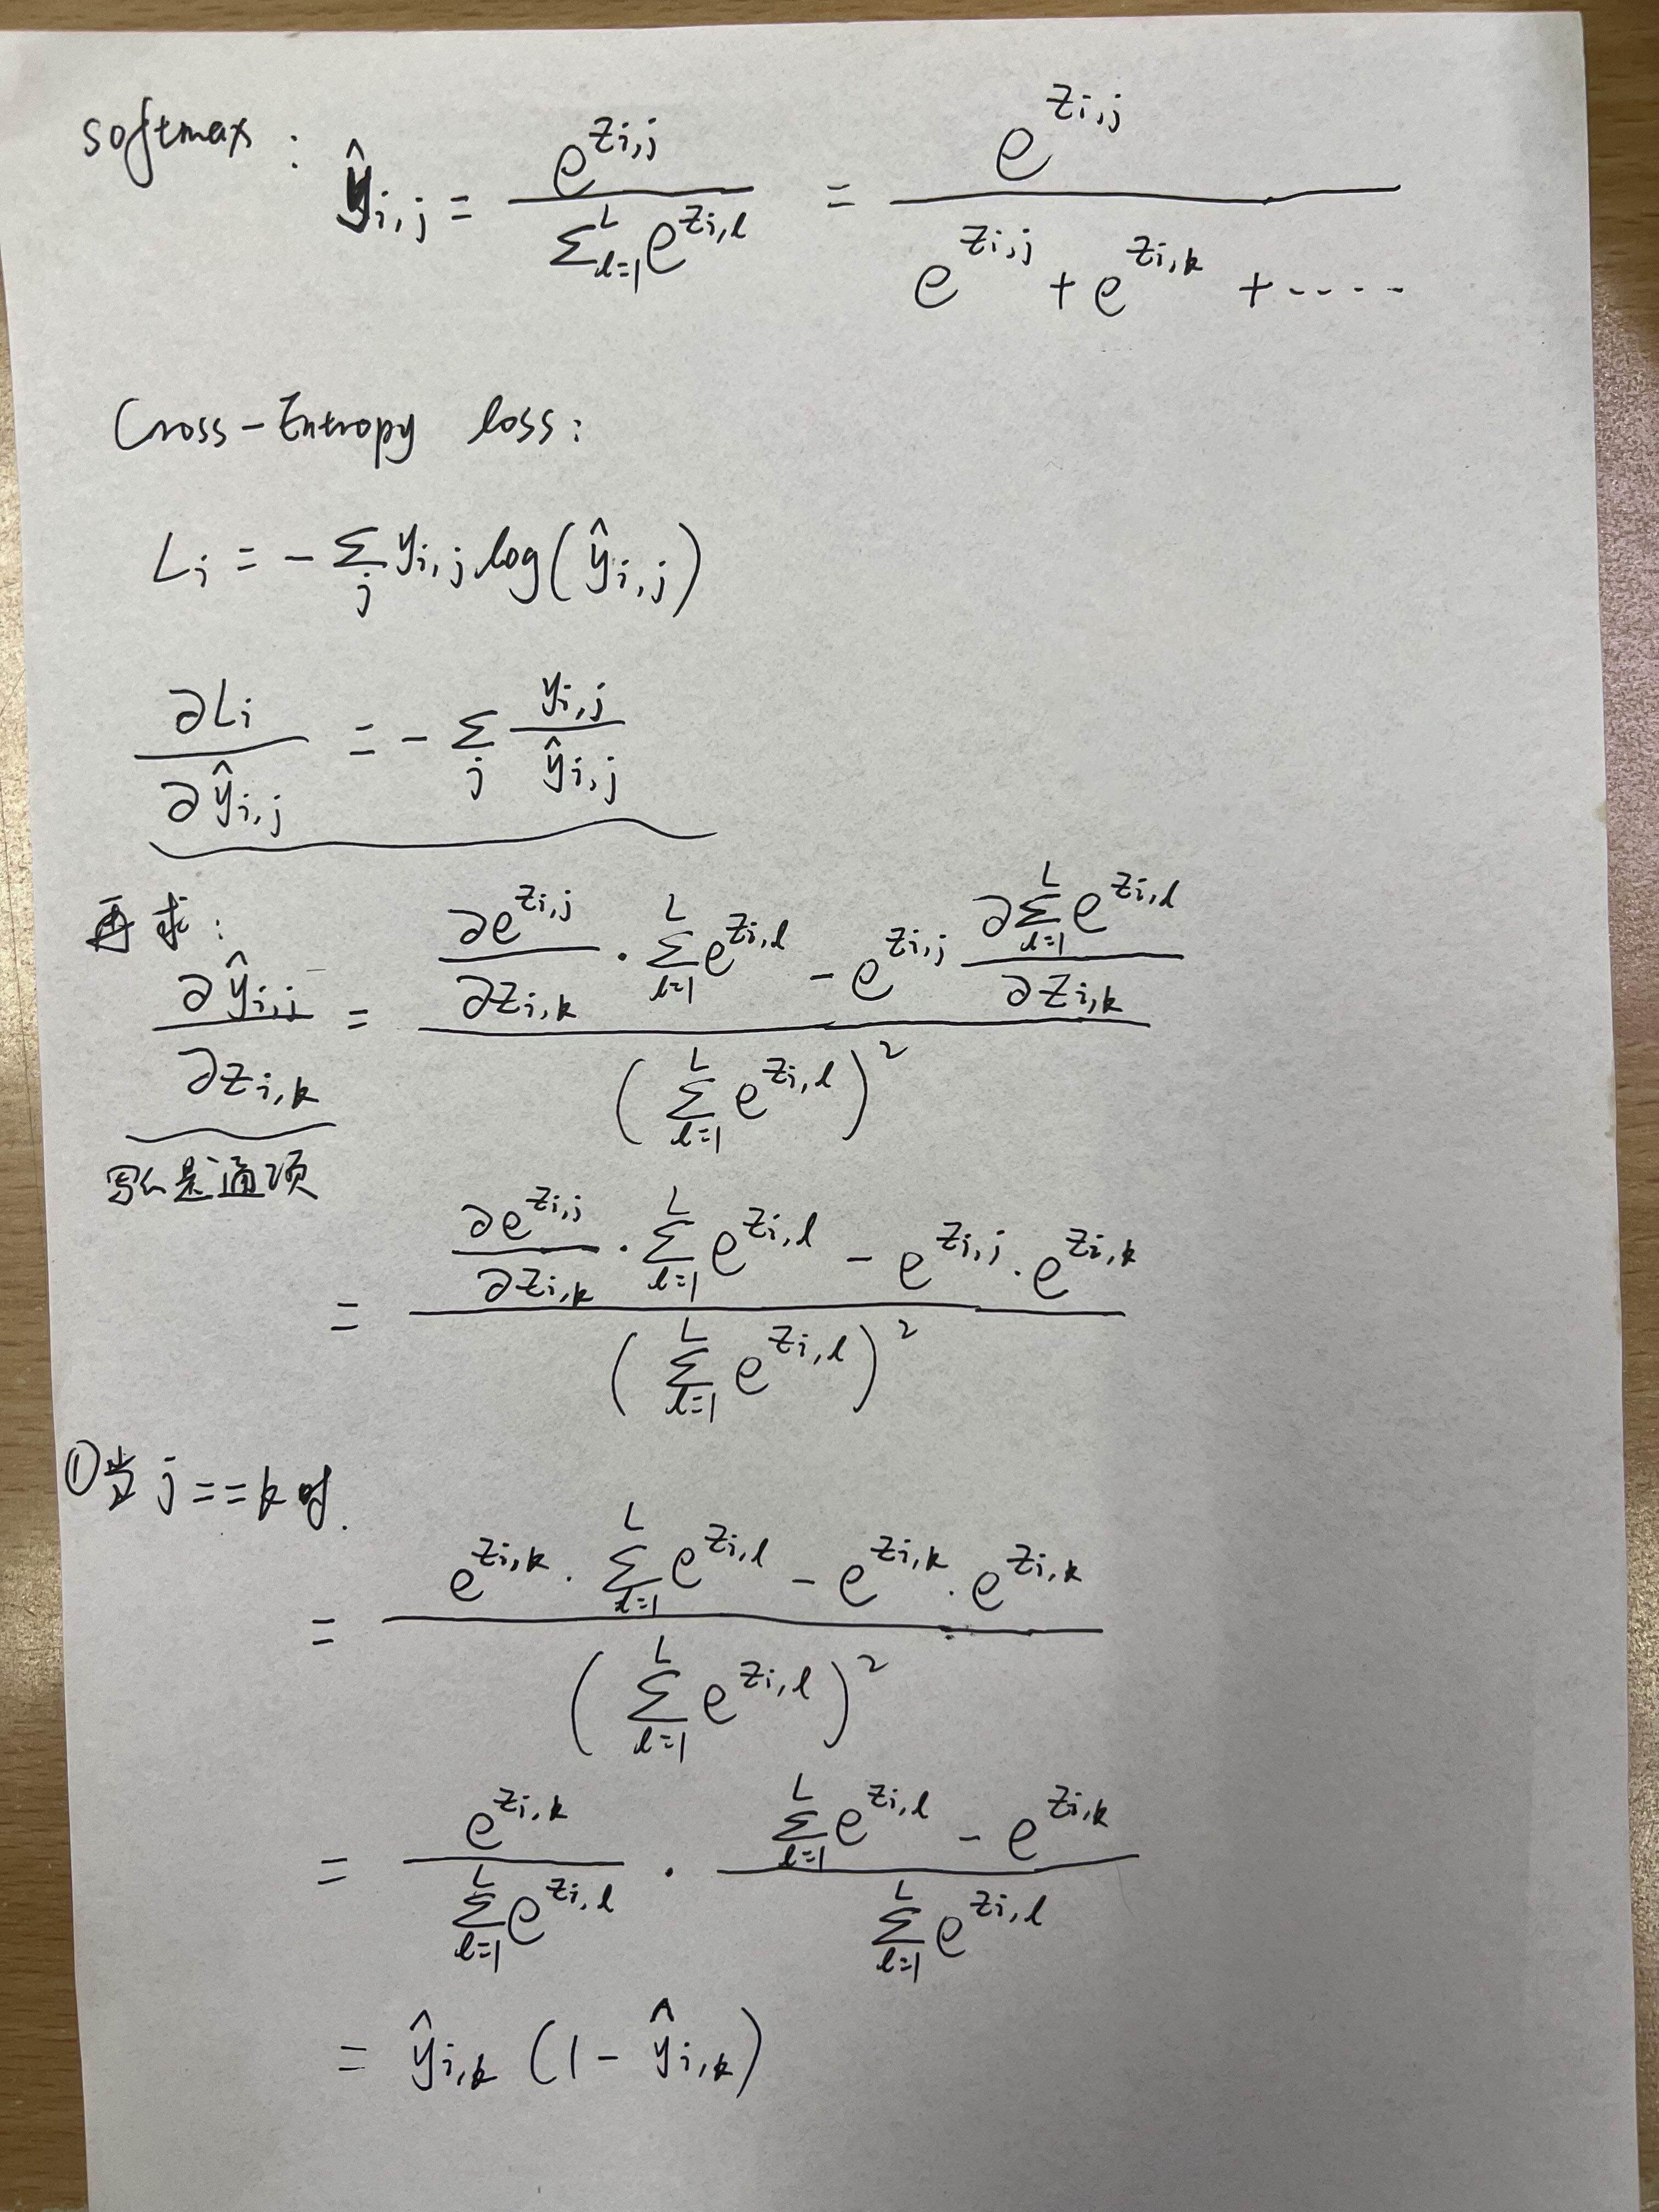 softmax: ŷ_{i,j} = e^{z_{i,j}} / Σ_{l=1}^{L} e^{z_{i,l}} = e^{z_{i,j}} / (e^{z_{i,j}} + e^{z_{i,k}} + ····)
Cross-Entropy loss:
L_i = - Σ_j y_{i,j} log(ŷ_{i,j})
∂L_i / ∂ŷ_{i,j} = - Σ_j y_{i,j} / ŷ_{i,j}
再求:
∂ŷ_{i,j} / ∂z_{i,k} = (∂e^{z_{i,j}} / ∂z_{i,k} · Σ_{l=1}^{L} e^{z_{i,l}} - e^{z_{i,j}} ∂Σ_{l=1}^{L} e^{z_{i,l}} / ∂z_{i,k}) / (Σ_{l=1}^{L} e^{z_{i,l}})^2
是通项
= (∂e^{z_{i,j}} / ∂z_{i,k} · Σ_{l=1}^{L} e^{z_{i,l}} - e^{z_{i,j}} · e^{z_{i,k}}) / (Σ_{l=1}^{L} e^{z_{i,l}})^2
①当 j==k 时.
= (e^{z_{i,k}} · Σ_{l=1}^{L} e^{z_{i,l}} - e^{z_{i,k}} · e^{z_{i,k}}) / (Σ_{l=1}^{L} e^{z_{i,l}})^2
= e^{z_{i,k}} / Σ_{l=1}^{L} e^{z_{i,l}} · (Σ_{l=1}^{L} e^{z_{i,l}} - e^{z_{i,k}}) / Σ_{l=1}^{L} e^{z_{i,l}}
= ŷ_{i,k} (1 - ŷ_{i,k})